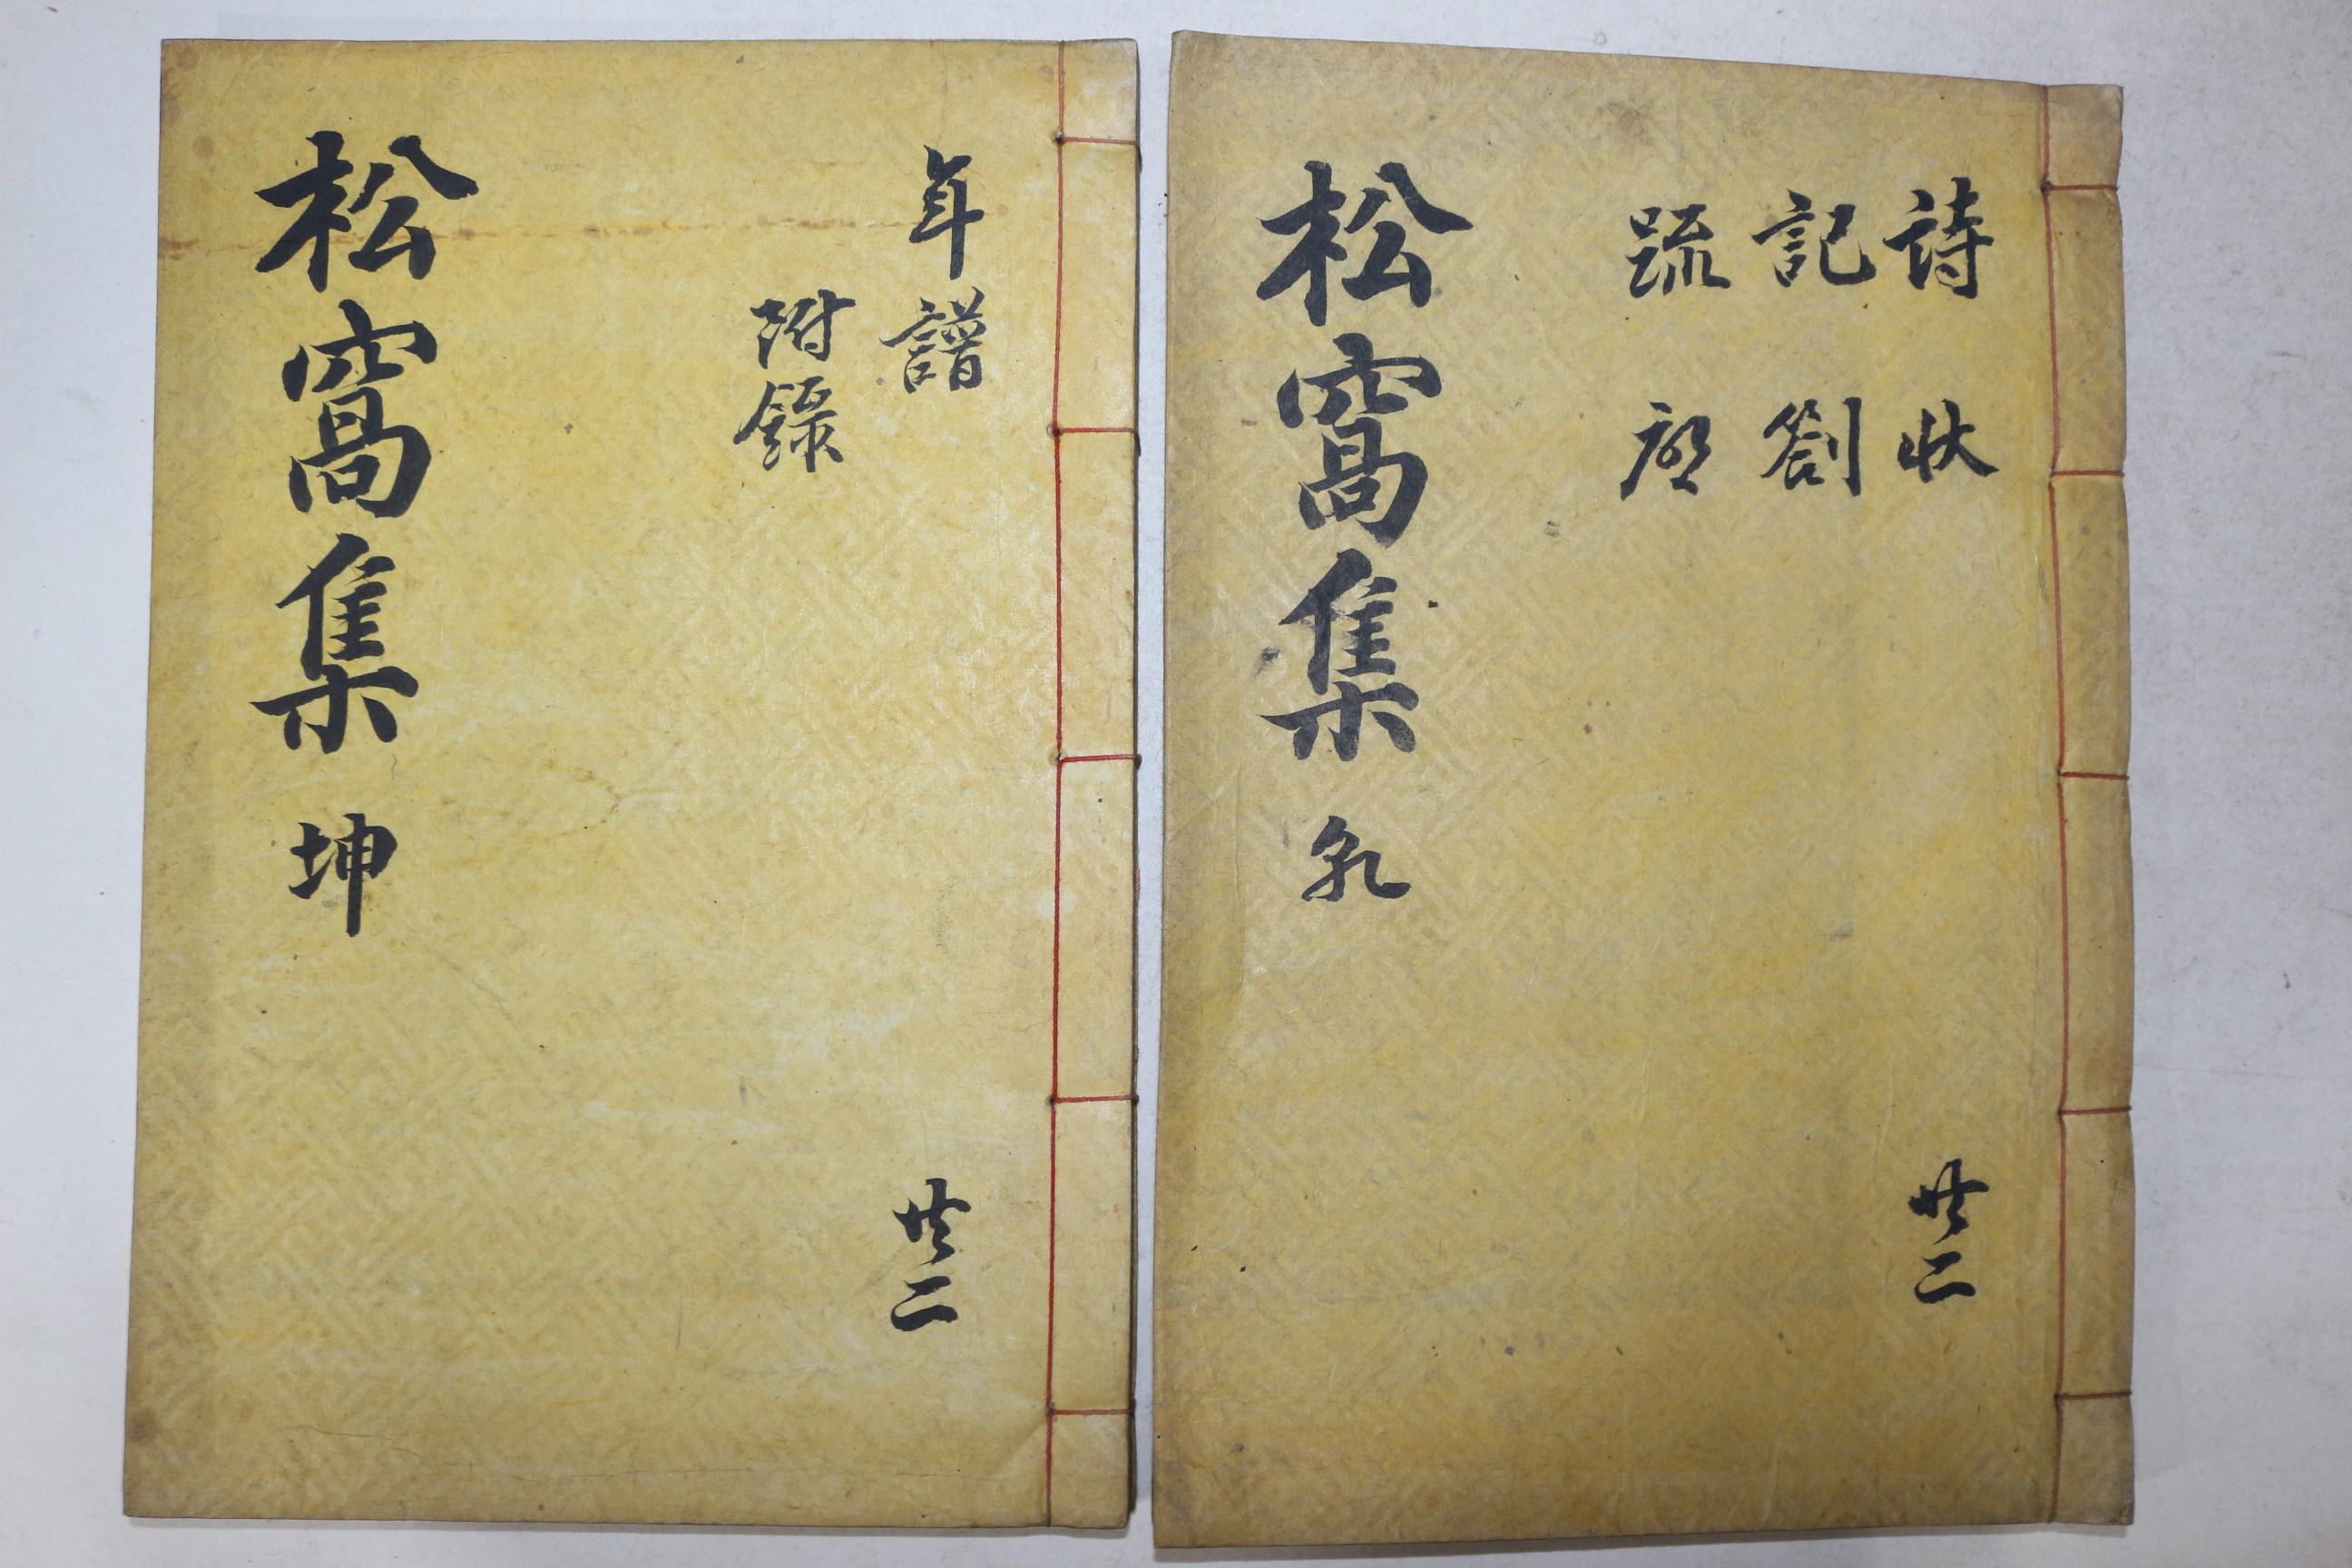 詩 狀
記 劄
䟽
共二
松窩集 乾
年譜
附錄
共二
松窩集 坤